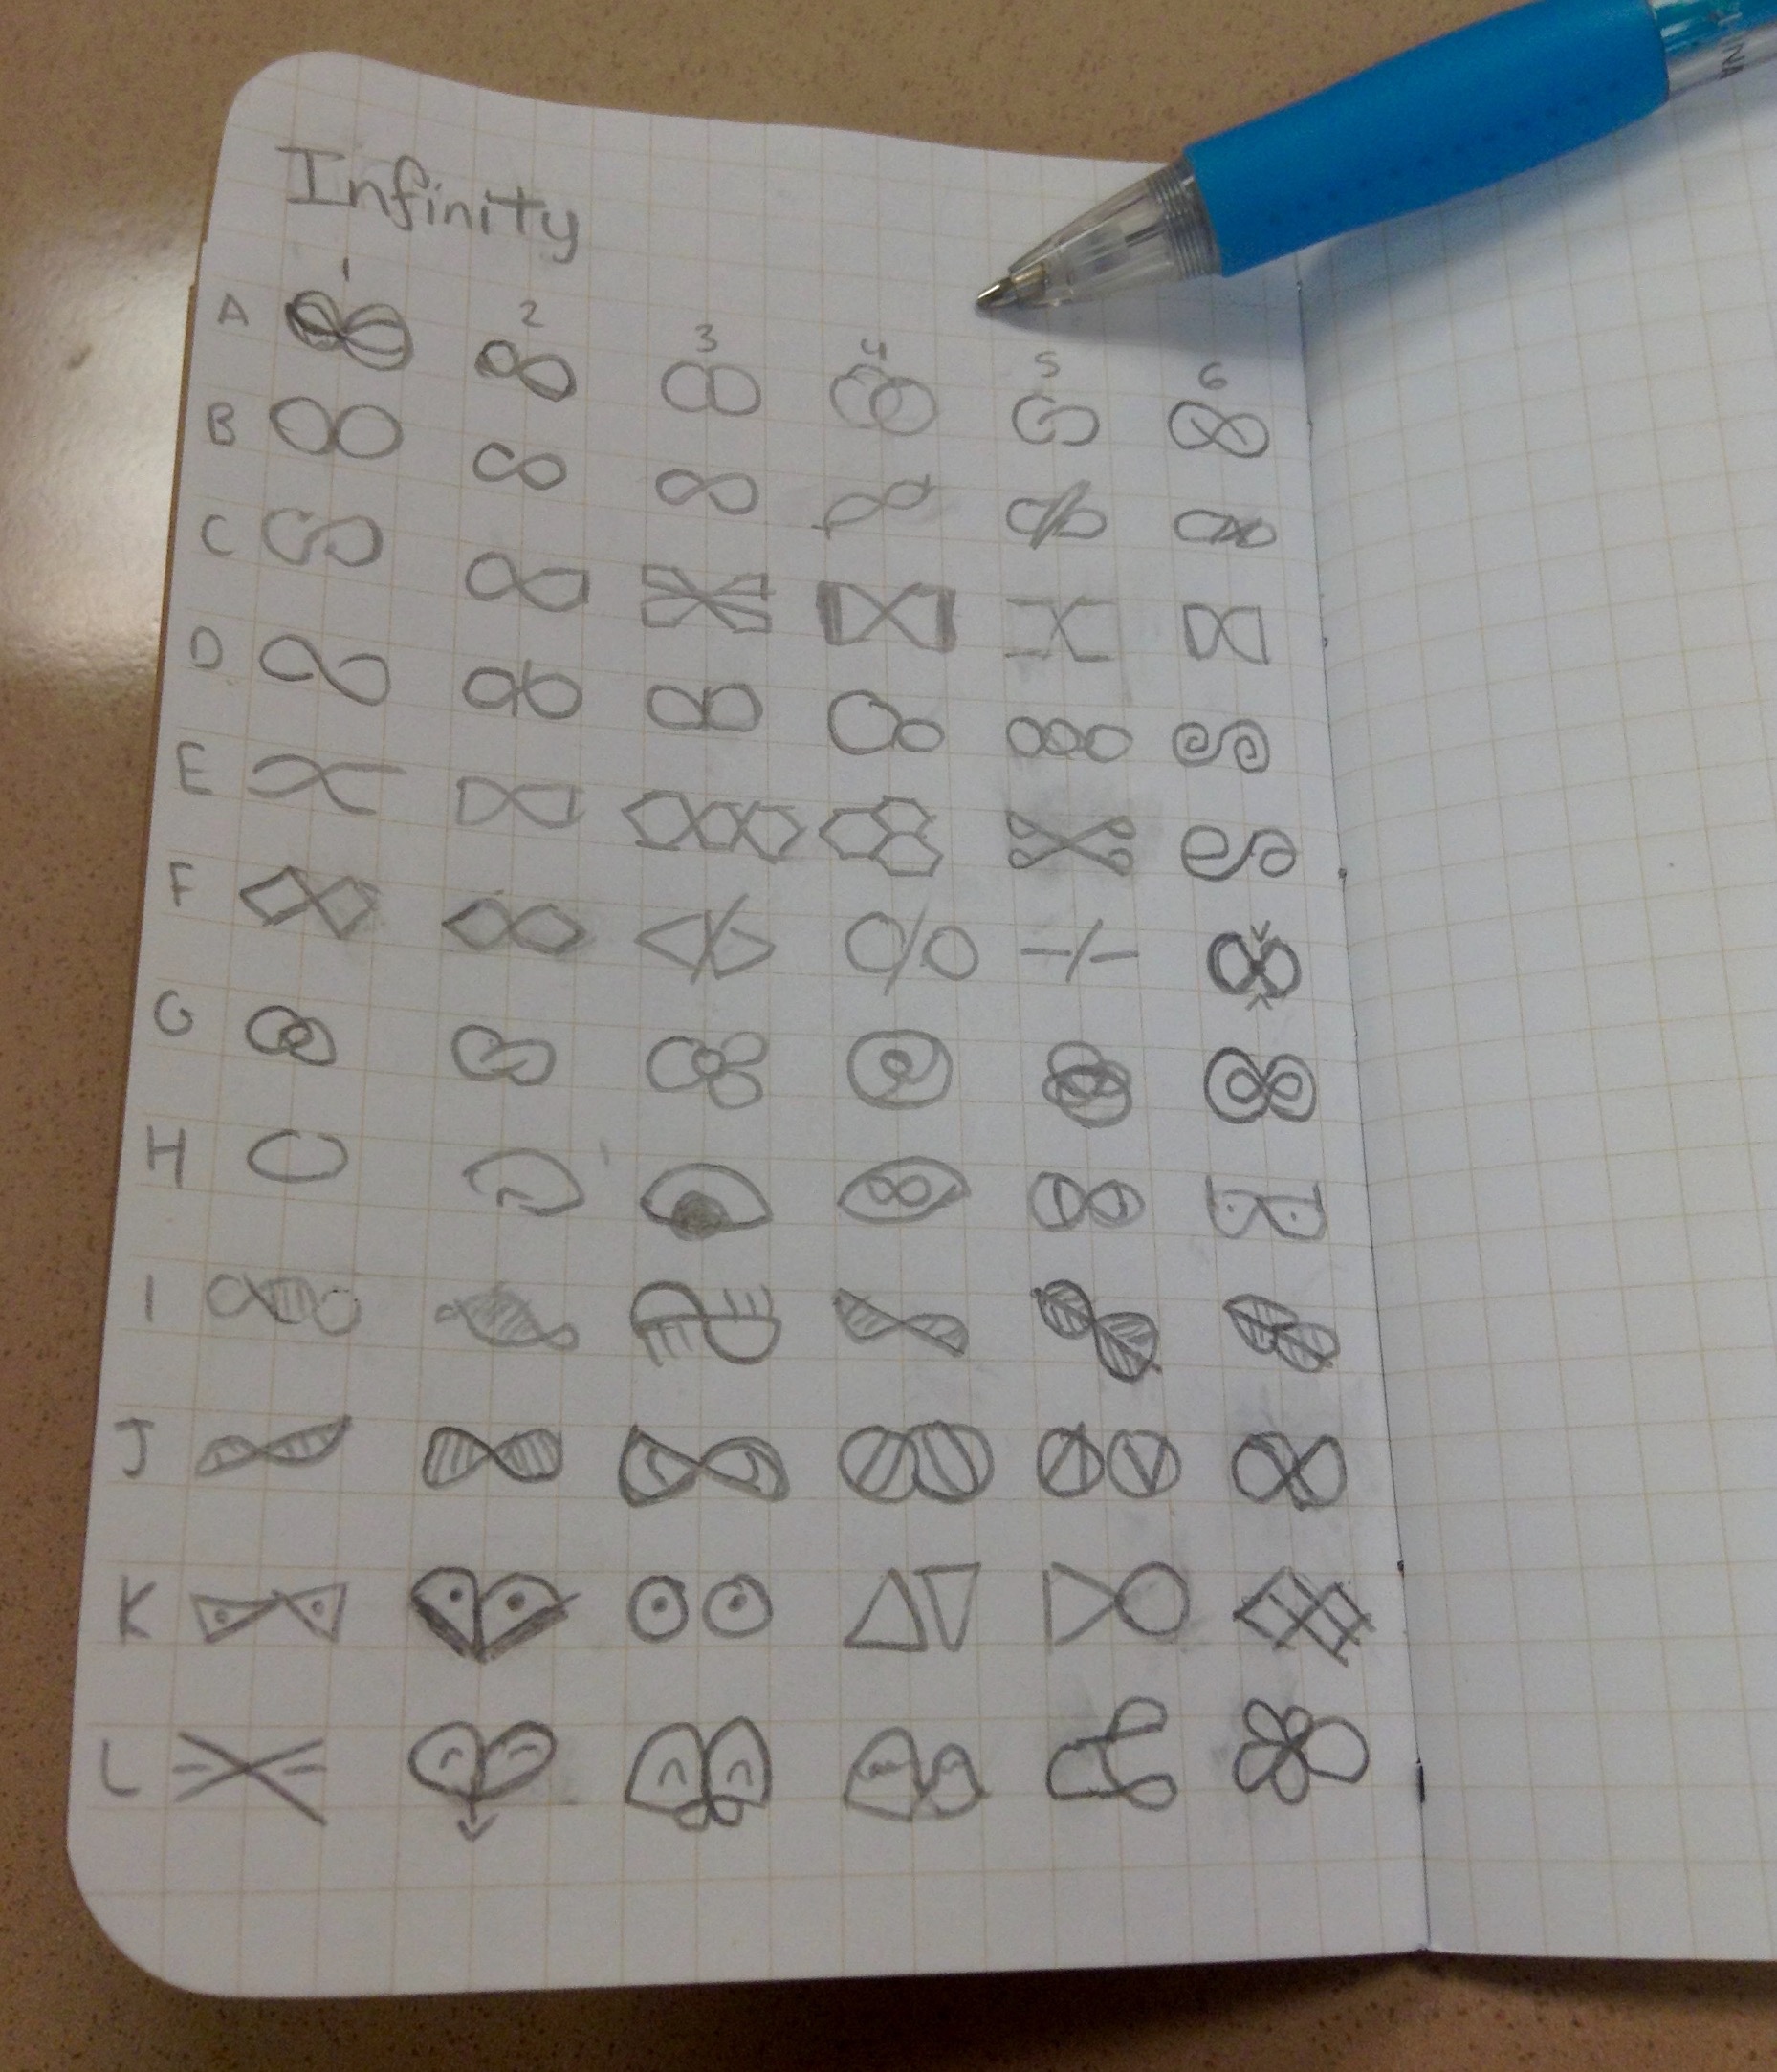 Infinity
1 2 3 4 5 6
A
B
C
D
E
F
G
H
I
J
K
L